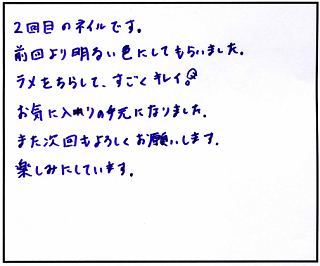 2回目のネイルです。
前回より明るい色にしてもらいました。
ラメをちらして、すごくキレイ。
お気に入りの手元になりました。
また次回もよろしくお願いします。
楽しみにしています。